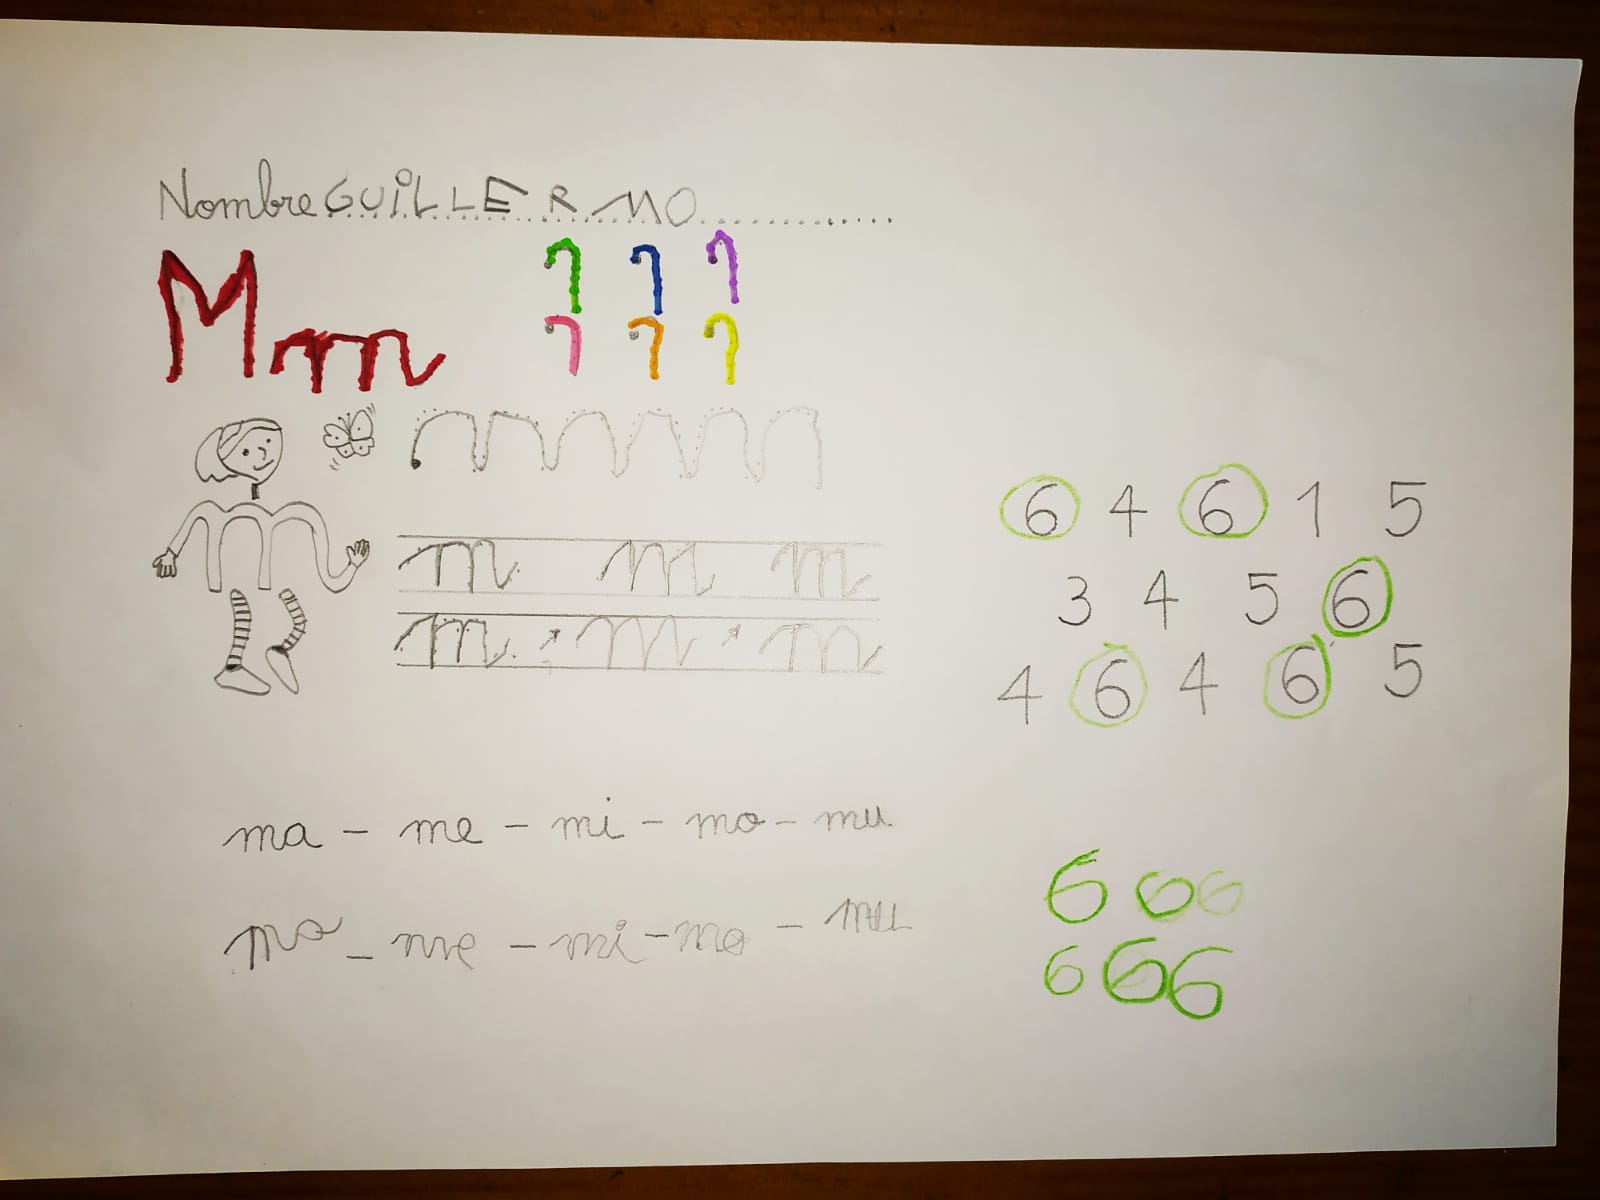 Nombre GUILLERMO
M m
m m m
m m m
6 4 6 1 5
3 4 5 6
4 6 4 6 5
ma - me - mi - mo - mu
ma - me - mi - mo - mu
6 6 6
6 6 6